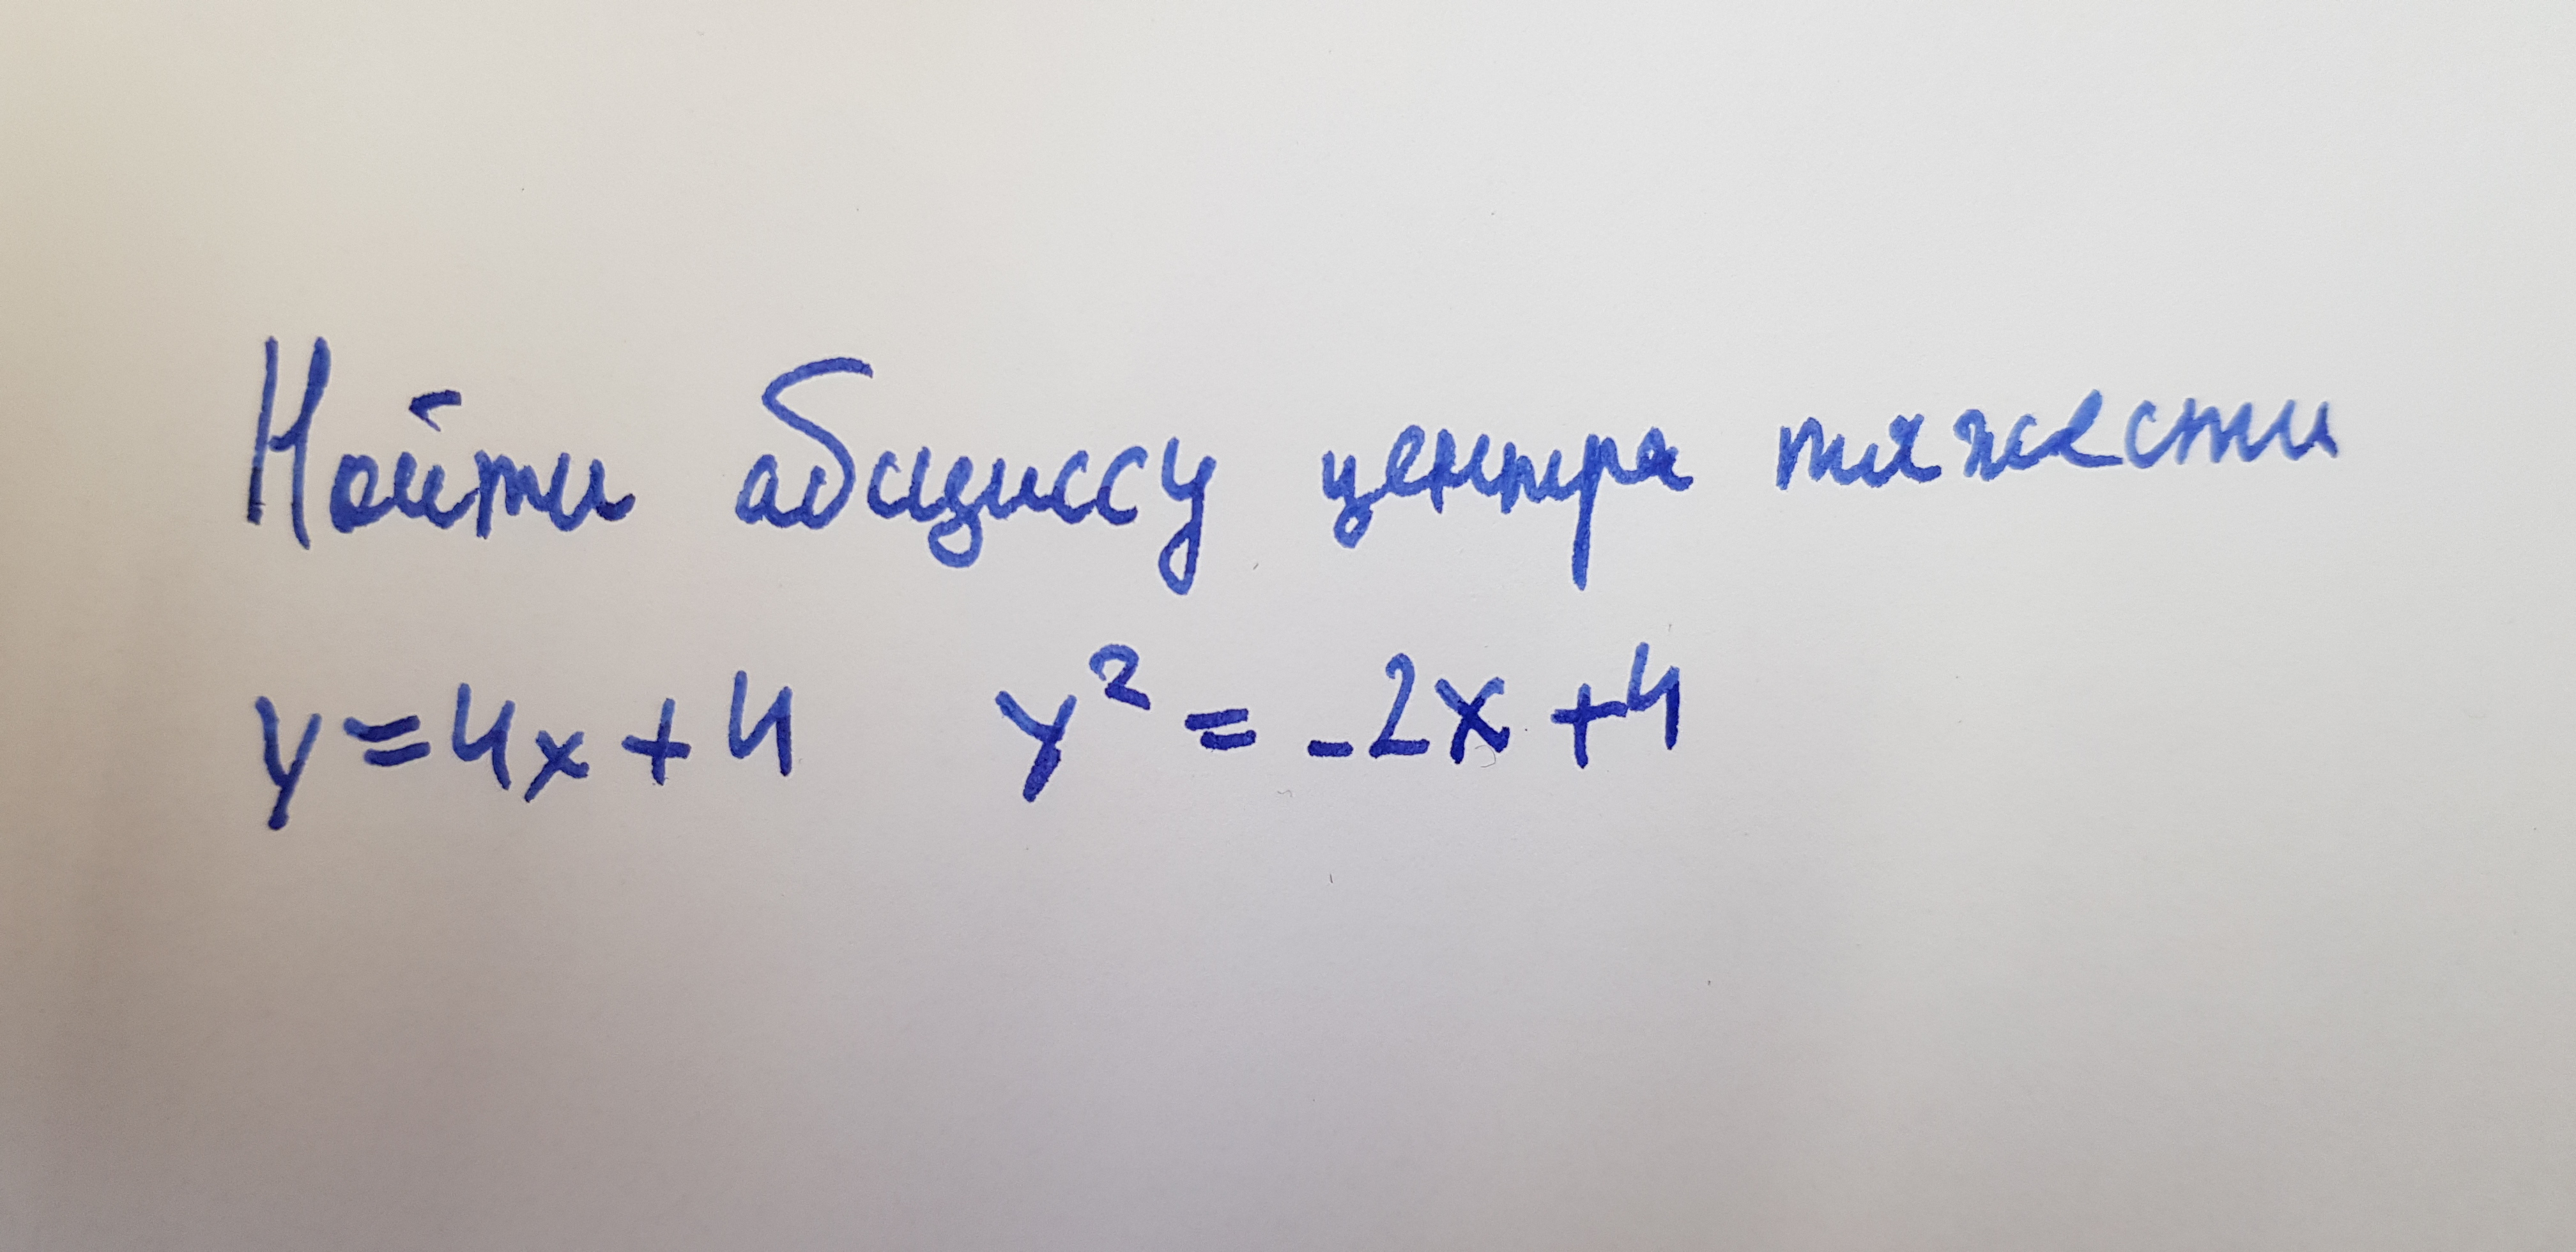 Найти абсциссу центра тяжести
y = 4x + 4 y² = -2x + 4